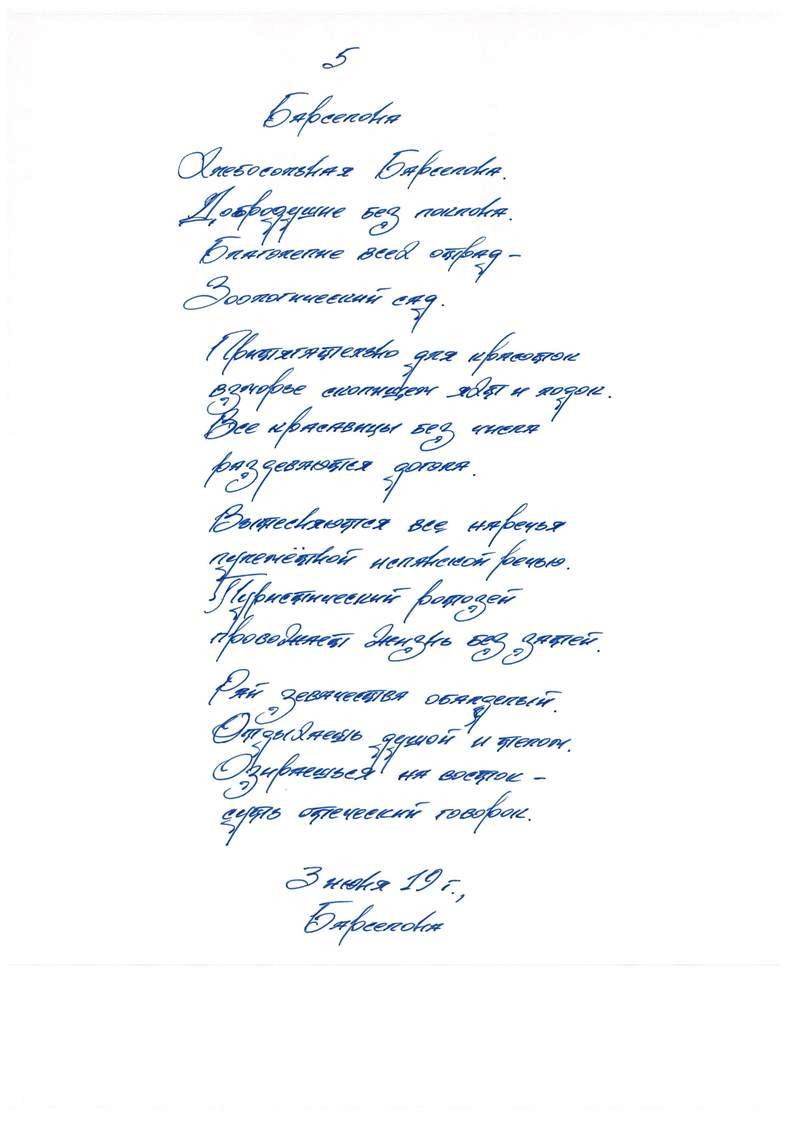 5
Барселона
Хлебосольная Барселона.
Добродушие без поклона.
Благолепие всей отрад –
Зоологический сад.
Притягательно для красоток
взморье скопищем яхт и лодок.
Все красавицы без числа
раздеваются догола.
Вытесняются все наречья
пулемётной испанской речью.
Туристический ротозей
провожает жизнь без затей.
Рай зевачества обалделый.
Отдыхаешь душой и телом.
Озираешься на восток –
суть отеческий говорок.
3 июня 19 г.,
Барселона